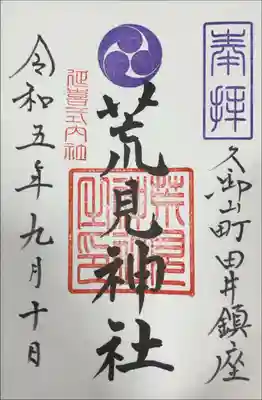 奉拝
久御山町田井鎮座
荒見神社
延喜式内社
令和五年九月十日